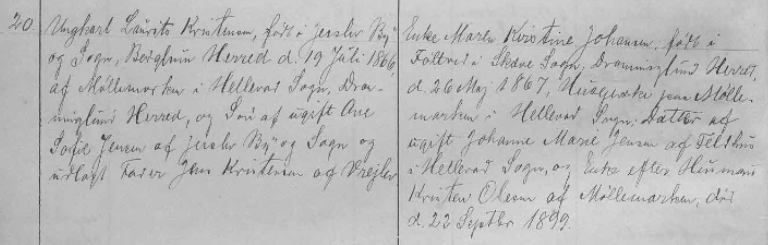 20.
Ungkarl Laurits Kristensen, født i Jerslev By
og Sogn, Børglum Herred d. 19 Juli 1866,
af Møllemarken i Hellevad Sogn, Dron-
ninglund Herred, og Søn af ugift Ane
Sofie Jensen af Jerslev By og Sogn og
udlagt Fader Jens Kristensen af Vrejlev
Enke Maren Kristine Johansen, født i
i Skæve Sogn, Dronninglund Herred,
d. 26 Maj 1867, Husejerske paa Mølle-
marken i Hellevad Sogn, Datter af
ugift Johanne Marie Jensen af Feldhus
i Hellevad Sogn, og Enke efter Husmand
Kristen Olesen af Møllemarken, død
d. 22 Septbr 1899.